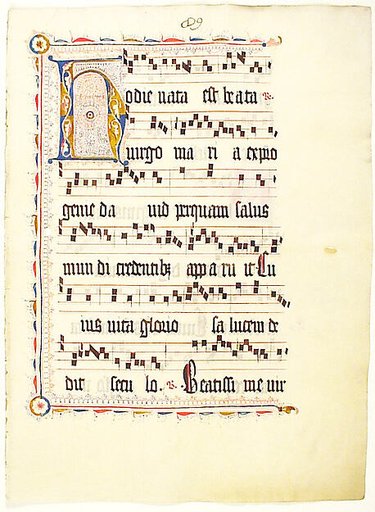 Hodie nata est beata ℟.
virgo ma ri a ex pro
genie da uid per quam salus
mun di credentibȝ appa ru it Cu
ius uita glorio sa lucem de
dit secu lo. ℟. Beatissi me vir